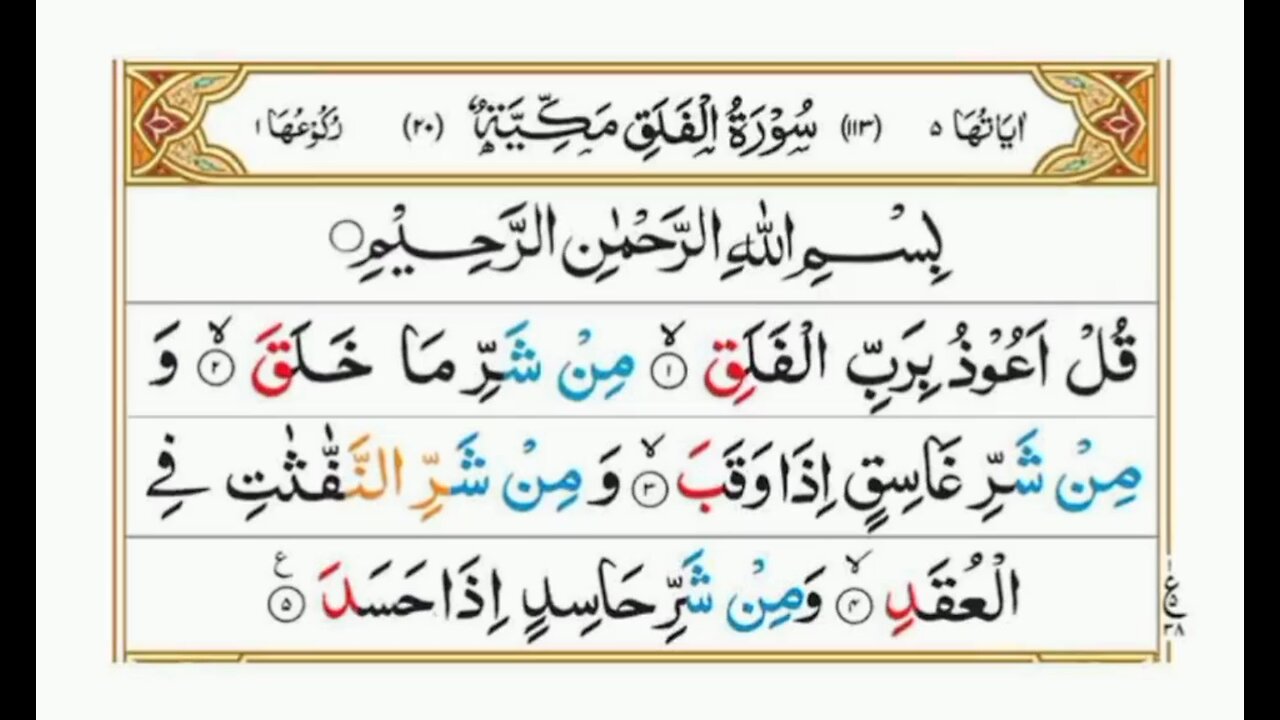 اٰيَاتُهَا ٥ (١١٣) سُوْرَةُ الْفَلَقِ مَكِّيَّةٌ (٢٠) رُكُوْعُهَا ١
بِسْمِ اللّٰهِ الرَّحْمٰنِ الرَّحِيْمِ
قُلْ اَعُوْذُ بِرَبِّ الْفَلَقِ ۙ١ مِنْ شَرِّ مَا خَلَقَ ۙ٢ وَ
مِنْ شَرِّ غَاسِقٍ اِذَا وَقَبَ ۙ٣ وَ مِنْ شَرِّ النَّفّٰثٰتِ فِي
الْعُقَدِ ۙ٤ وَمِنْ شَرِّ حَاسِدٍ اِذَا حَسَدَ ٥ ع
ع
٥
٣٨